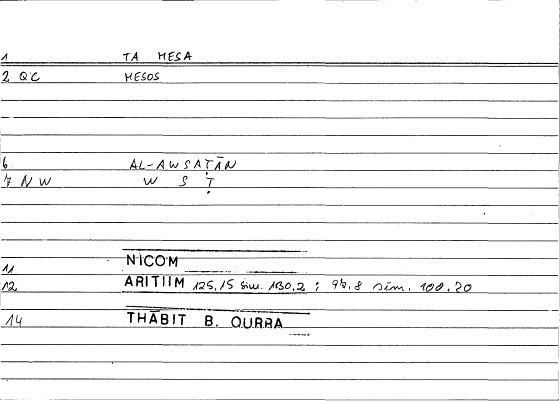 1 TA MESA
2 QC MESOS
6 AL-AWSAṬĀN
7 NW W S Ṭ
11 NICOM
12 ARITIIM 125,15 sim. 130,2 ; 97,8 sim. 100,20
14 THĀBIT B. QURRA